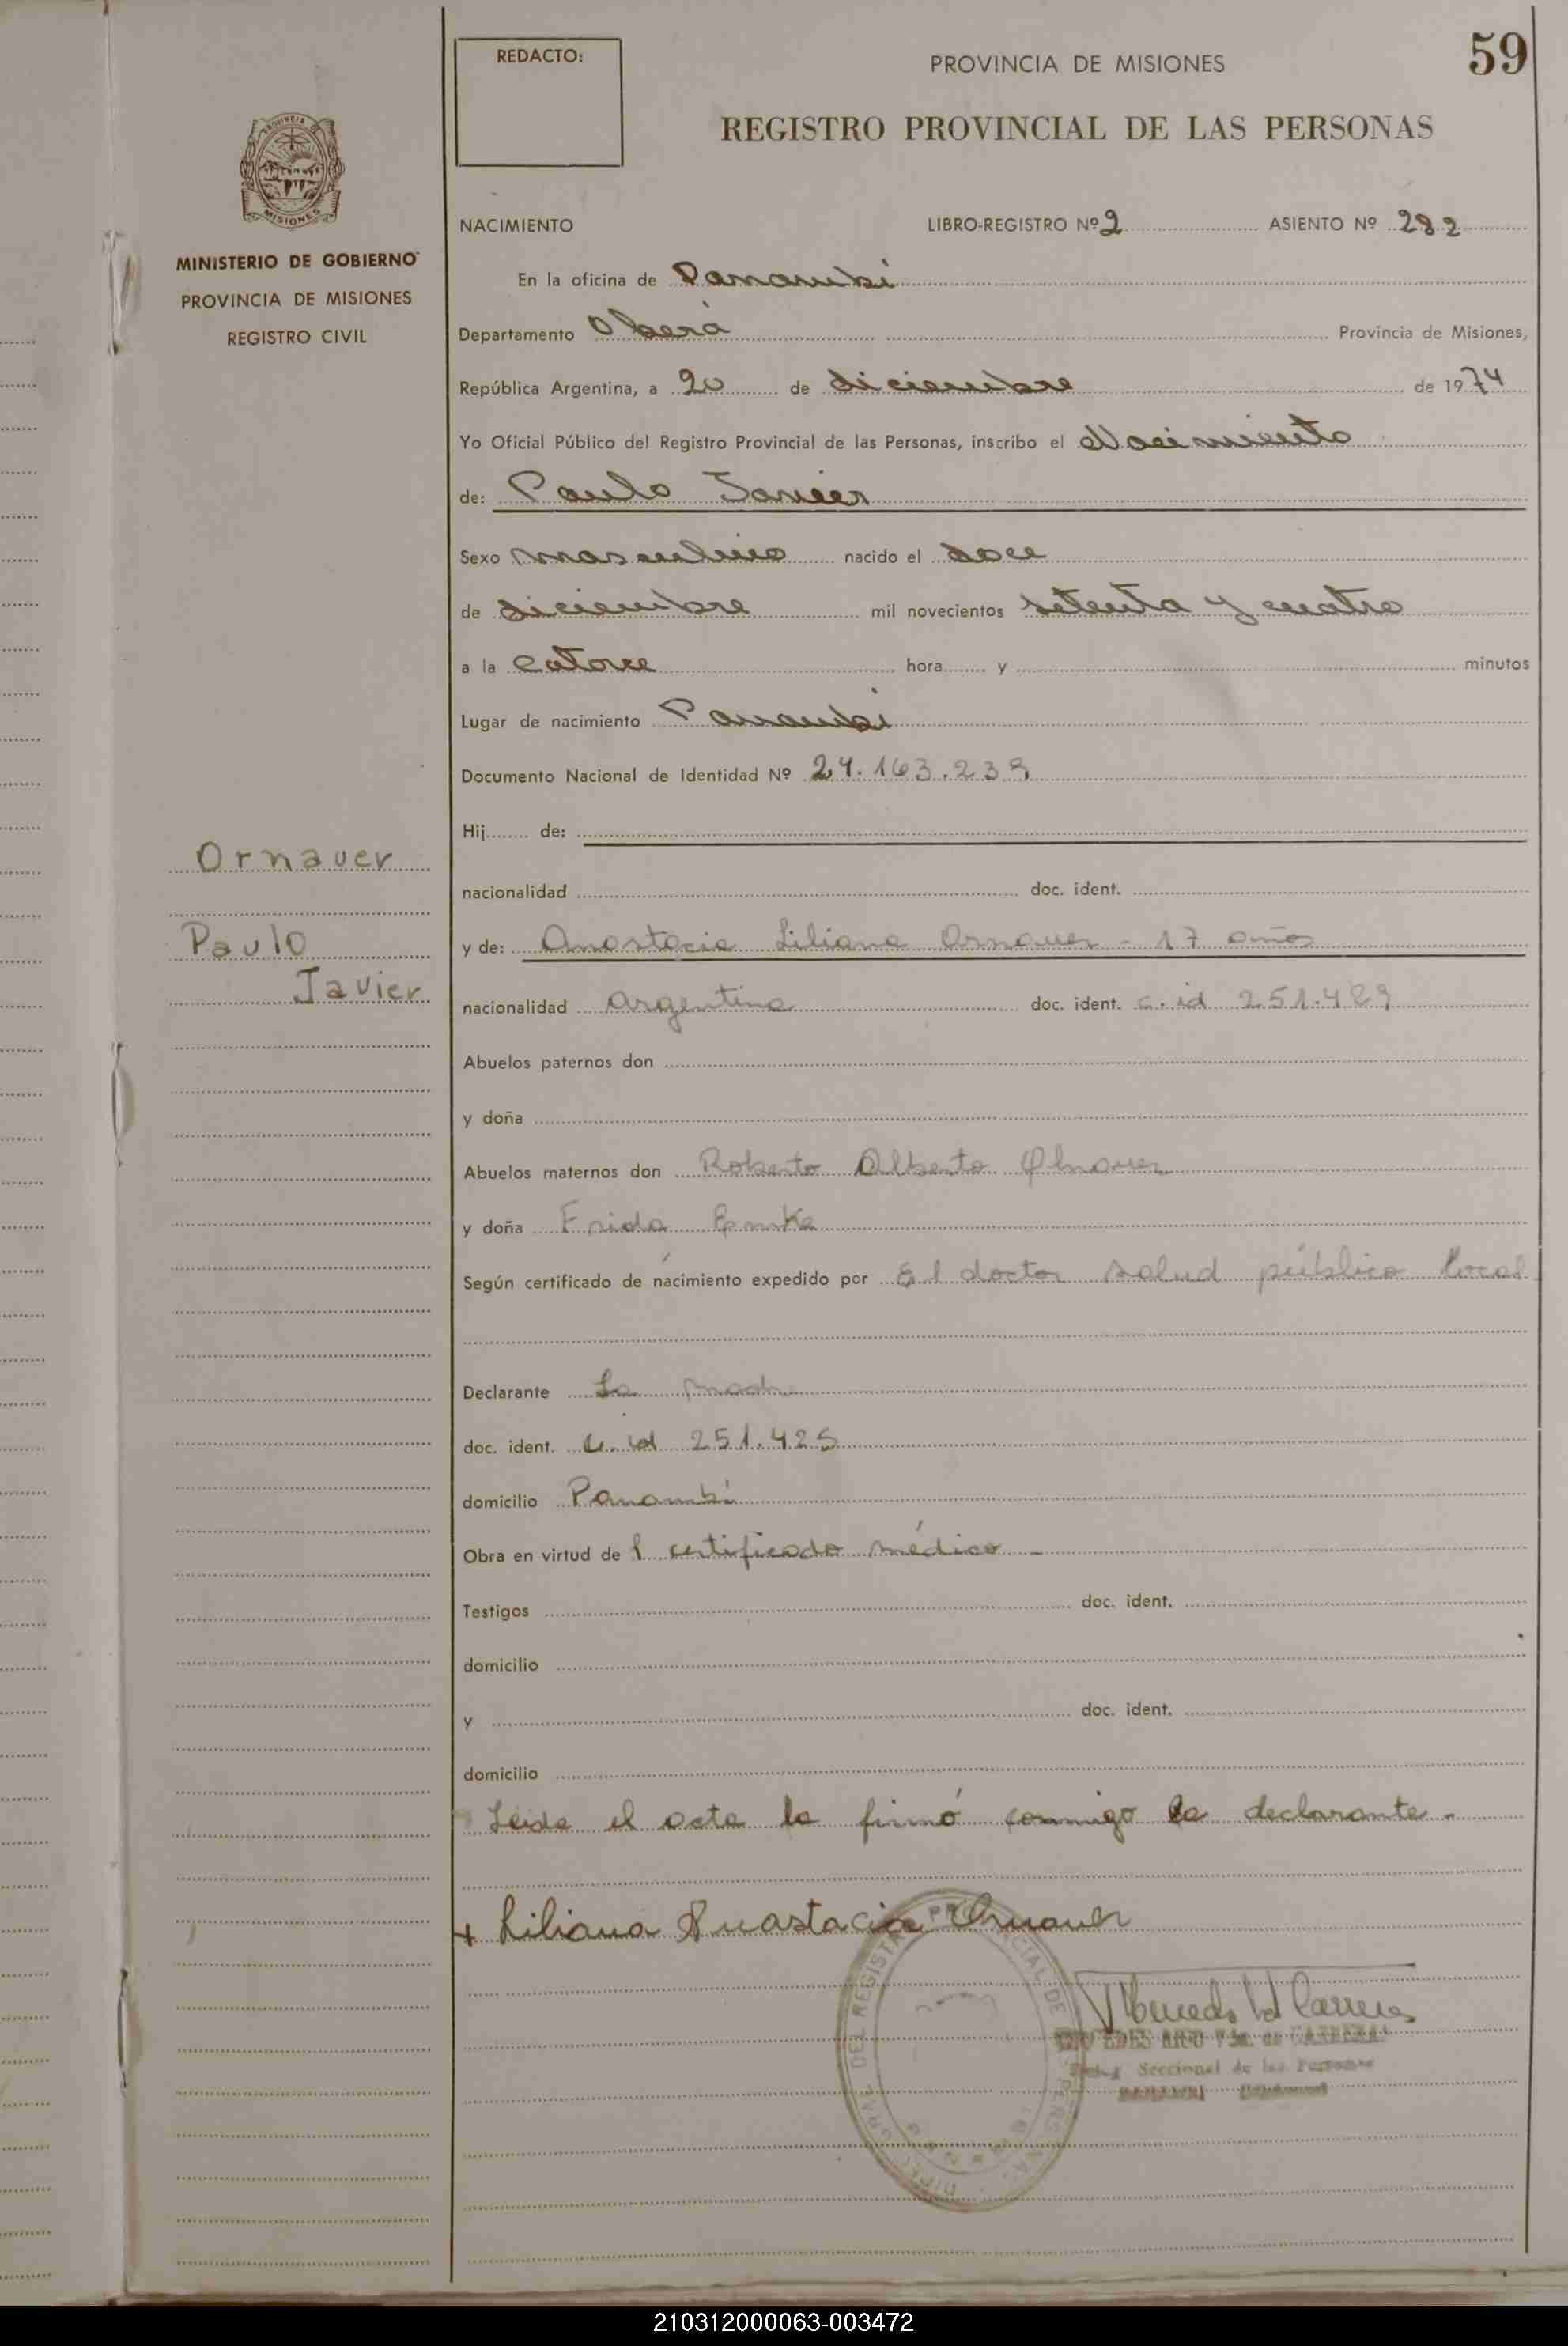 REDACTO:
PROVINCIA DE MISIONES
59
REGISTRO PROVINCIAL DE LAS PERSONAS
PROVINCIA
MISIONES
MINISTERIO DE GOBIERNO
PROVINCIA DE MISIONES
REGISTRO CIVIL
NACIMIENTO LIBRO-REGISTRO Nº 2 ASIENTO Nº 282
En la oficina de Panambí
Departamento Oberá Provincia de Misiones,
República Argentina, a 20 de diciembre de 1974
Yo Oficial Público del Registro Provincial de las Personas, inscribo el Nacimiento
de: Paulo Javier
Sexo masculino nacido el doce
de diciembre mil novecientos setenta y cuatro
a la catorce hora y minutos
Lugar de nacimiento Panambí
Documento Nacional de Identidad Nº 24.163.239
Hij de:
Ornauer
nacionalidad doc. ident.
Paulo
y de: Anastacia Liliana Ornauer - 17 años
Javier
nacionalidad argentina doc. ident. c. id 251.429
Abuelos paternos don
y doña
Abuelos maternos don Roberto Alberto
y doña Frida
Según certificado de nacimiento expedido por El doctor salud pública local
Declarante La madre
doc. ident. c. id 251.425
domicilio Panambí
Obra en virtud de 1 certificado médico -
Testigos doc. ident.
domicilio
y doc. ident.
domicilio
Leida el acta la firmó conmigo la declarante -
+ Liliana Anastacia Ornauer
Seccional de las Personas
210312000063-003472